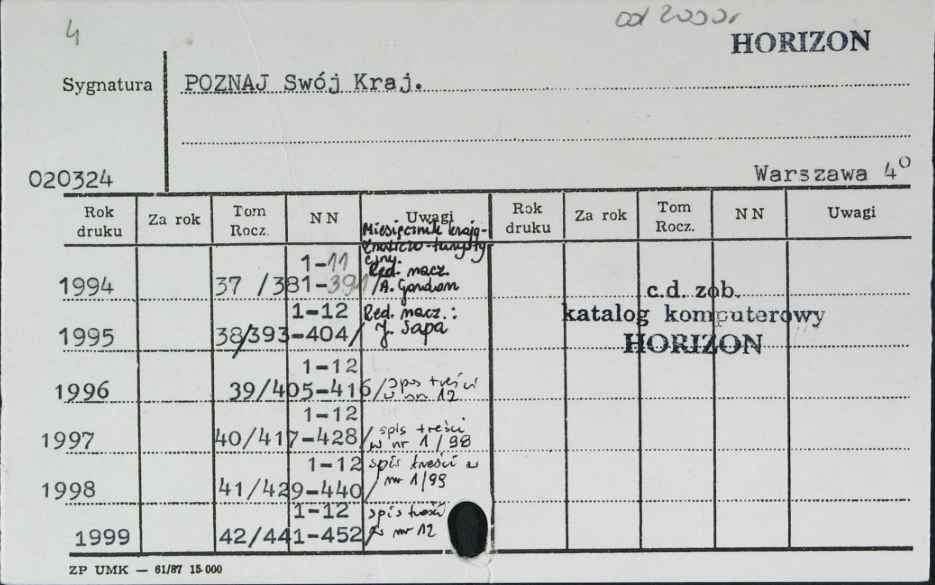 4
od 2000r
HORIZON
Sygnatura POZNAJ Swój Kraj.
020324 Warszawa 4°
Rok druku Za rok Tom Rocz. NN Uwagi Rok druku Za rok Tom Rocz. NN Uwagi
Miesięcznik krajo-
znawczo-turysty
czny.
1-11 Red. nacz.
1994 37 /381-391/ A. Gordon
c.d. zob.
1-12 Red. nacz.: katalog komputerowy
1995 38/393-404/ J. Sapa HORIZON
1-12
1996 39/405-416/ spis treści
w nr 12
1-12
1997 40/417-428/ spis treści
w nr 1/98
1-12 spis treści w
1998 41/429-440/ nr 1/99
1-12 spis treści
1999 42/441-452/ w nr 12
ZP UMK — 61/87 15.000